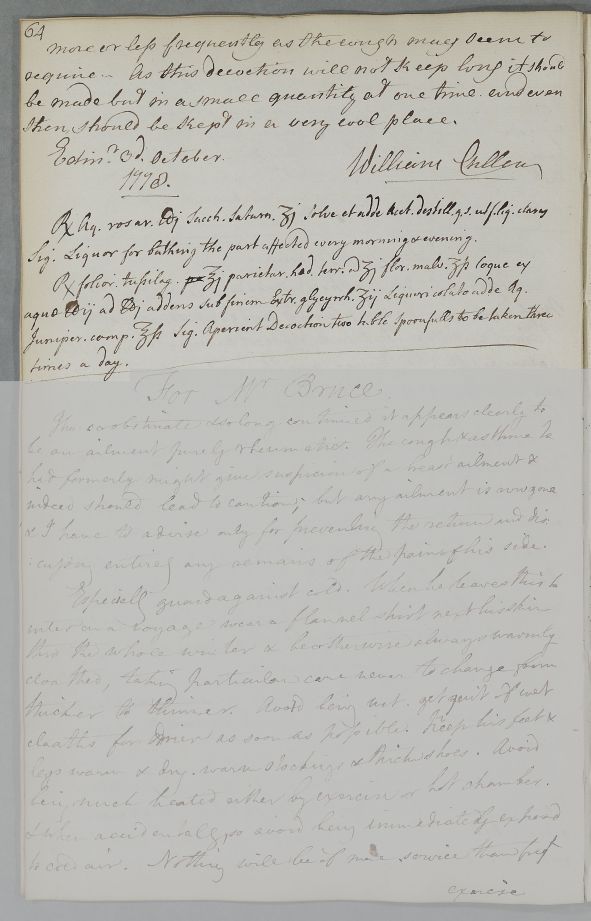 64
more or less frequently as the cough may seem to
require. As this decoction will not keep long it should
be made but in a small quantity at one time and even
then, should be kept in a very cool place.
Edinr. 3d. October.
1778.
William Cullen
℞ Aq. rosar. ℔j Sacch. Saturn. ʒj solve et adde Acet. destill. q.s. ut f. liq. clarus
Sig. Liquor for bathing the part affected every morning & evening.
℞ folior. tussilag. ʒj parietar. hed. terr. a ʒj flor. malv. ʒß coque ex
aquæ ℔ij ad ℔j addens sub finem Extr. glycyrrh. ʒij Liquori colato adde Aq.
Juniper. comp. ʒß Sig. Aperient Decoction two table spoonfulls to be taken three
times a day.
For Mr Bruce.
Tho so obstinate & so long continued it appears clearly to
be an ailment purely rheumatic. The cough & asthma he
had formerly might give suspicion of a breast ailment &
indeed should lead to caution; but any ailment is now gone
& I have to advise only for preventing the return and dis
:cussing entirely any remains of the pain of his side.
Especially guard against cold. When he leaves this to
enter on a voyage wear a flannel shirt next his skin
thro the whole winter & be otherwise always warmly
cloathed, taking particular care never to change from
thicker to thinner. Avoid being wet. get quit of wet
cloaths for drier as soon as possible. Keep his feet &
legs warm & dry. warm stockings & thick shoes. Avoid
being much heated either by exercise or hot chamber.
& when accidentally so avoid being immediately exposed
to cold air. Nothing will be of more service than freqt
exercise